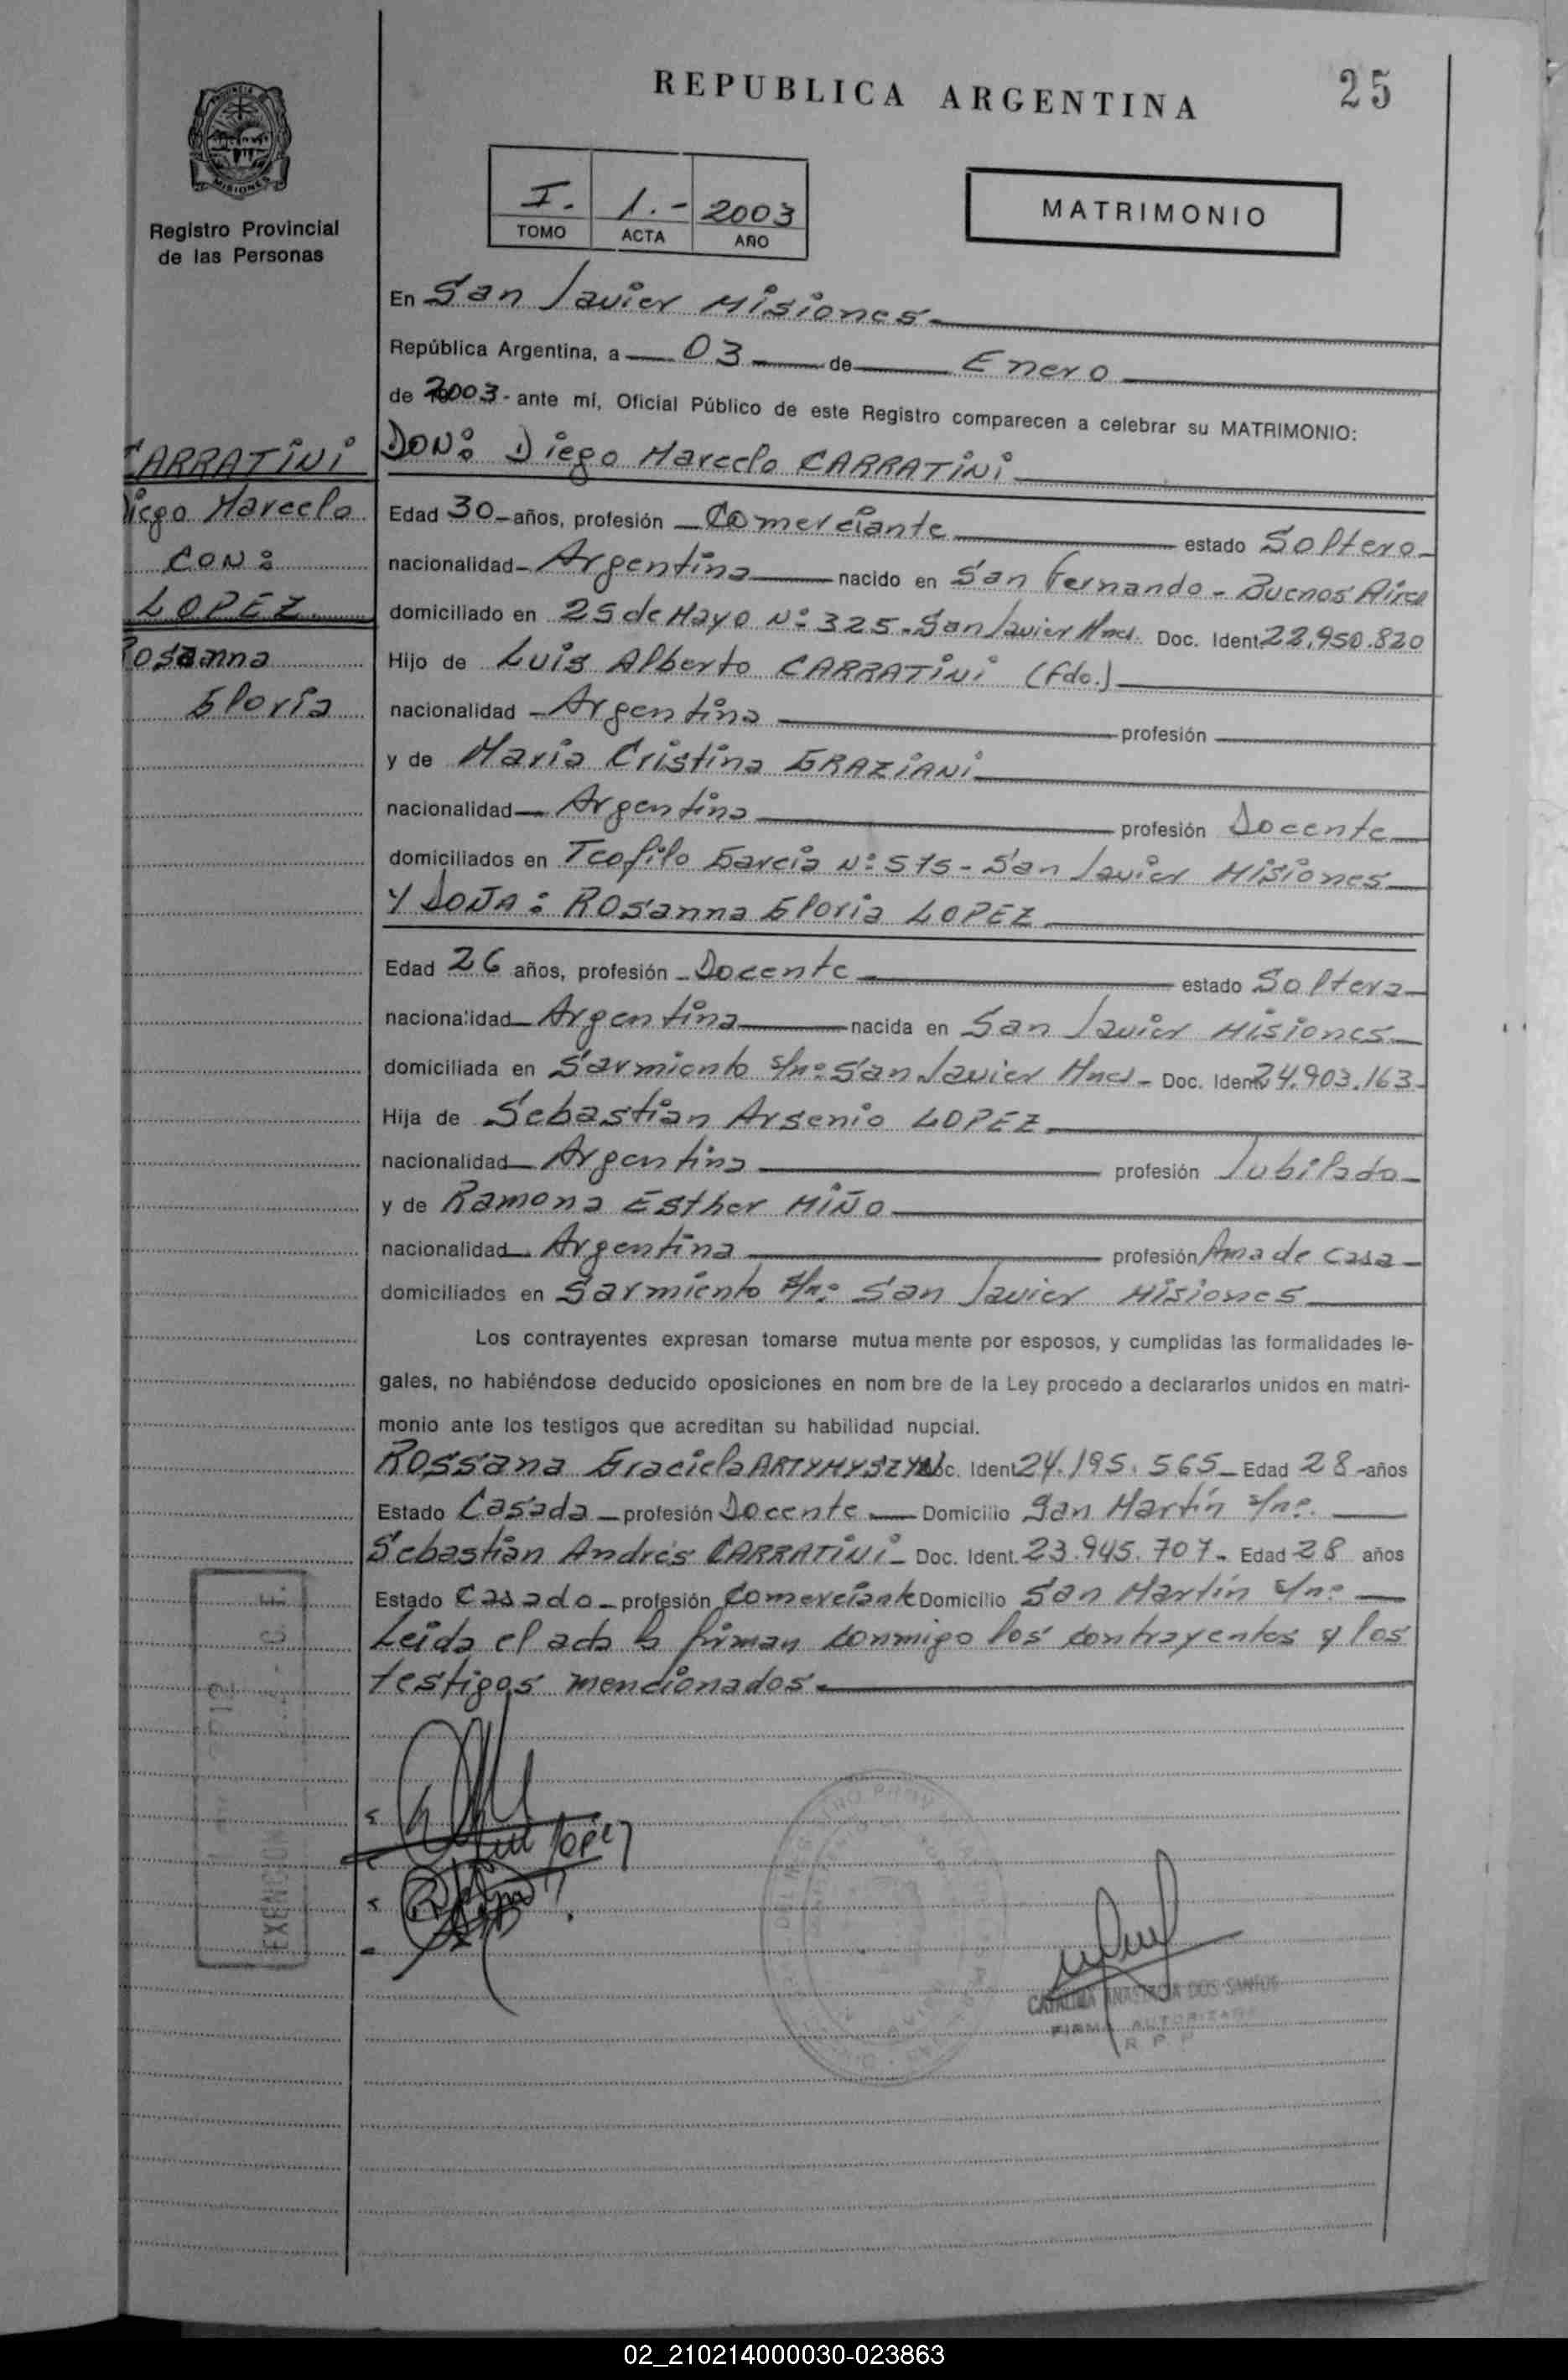 REPUBLICA ARGENTINA
25
PROVINCIA
MISIONES
Registro Provincial
de las Personas
I. 1.- 2003
TOMO ACTA AÑO
MATRIMONIO
En San Javier Misiones
República Argentina, a 03 de Enero
de 2003- ante mí, Oficial Público de este Registro comparecen a celebrar su MATRIMONIO:
CARRATINI
Diego Marcelo
CON:
LOPEZ
Rosanna
Gloria
DON: Diego Marcelo CARRATINI
Edad 30 años, profesión Comerciante estado Soltero
nacionalidad Argentina nacido en San Fernando - Buenos Aires
domiciliado en 25 de Mayo Nº 325. San Javier Mnes. Doc. Ident. 22.950.820
Hijo de Luis Alberto CARRATINI (fdo.)
nacionalidad Argentina profesión
y de Maria Cristina GRAZIANI
nacionalidad Argentina profesión Docente
domiciliados en Teofilo Garcia Nº 575 - San Javier Misiones
Y DOÑA: Rosanna Gloria LOPEZ
Edad 26 años, profesión Docente estado Soltera
nacionalidad Argentina nacida en San Javier Misiones
domiciliada en Sarmiento s/nº San Javier Mnes - Doc. Ident. 24.903.163
Hija de Sebastian Arsenio LOPEZ
nacionalidad Argentina profesión Jubilado
y de Ramona Esther MIÑO
nacionalidad Argentina profesión Ama de casa
domiciliados en Sarmiento s/nº San Javier Misiones
Los contrayentes expresan tomarse mutua mente por esposos, y cumplidas las formalidades le-
gales, no habiéndose deducido oposiciones en nom bre de la Ley procedo a declararlos unidos en matri-
monio ante los testigos que acreditan su habilidad nupcial.
Rossana Graciela ARTYMYSZYN Doc. Ident. 24.195.565 Edad 28 años
Estado Casada profesión Docente Domicilio San Martín s/nº.
Sebastián Andrés CARRATINI Doc. Ident. 23.945.707 Edad 28 años
Estado Casado profesión Comerciante Domicilio San Martín s/nº
Leida el acta la firman conmigo los contrayentes y los
testigos mencionados.
EXENCION
lopez
CATALINA ANASTACIA DOS SANTOS
FIRMA AUTORIZADA
R P P
02_210214000030-023863